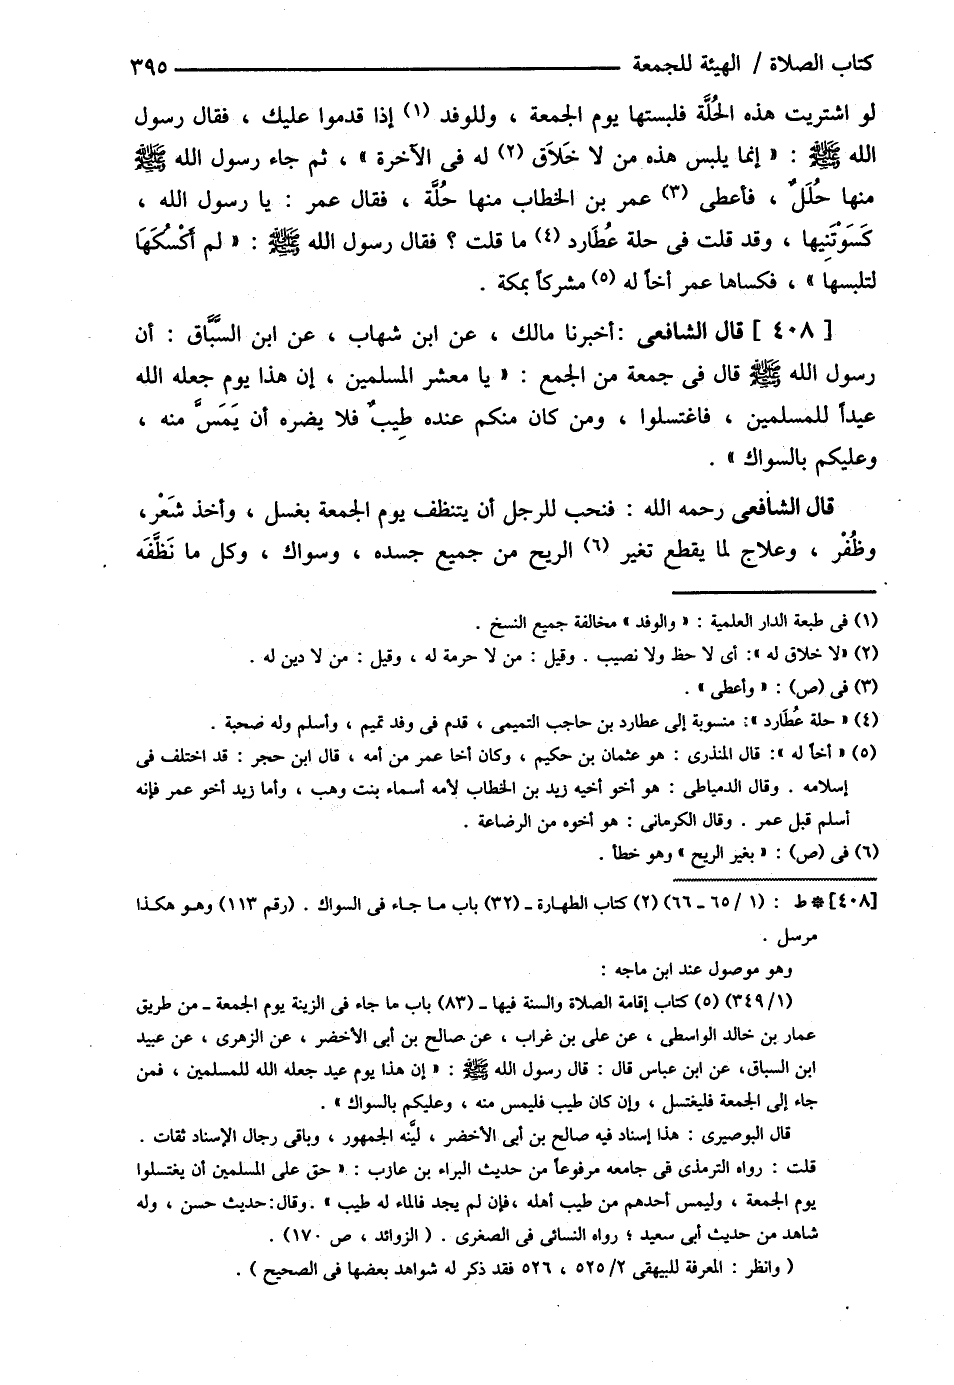 كتاب الصلاة / الهيئة للجمعة ــــــــــــ ٣٩٥
لو اشتريت هذه الحُلَّة فلبستها يوم الجمعة ، وللوفد (١) إذا قدموا عليك ، فقال رسول
الله ﷺ : « إنما يلبس هذه من لا خَلاَق (٢) له فى الآخرة » ، ثم جاء رسول الله ﷺ
منها حُلَلٌ ، فأعطى (٣) عمر بن الخطاب منها حُلَّة ، فقال عمر : يا رسول الله ،
كَسَوْتَنِيها ، وقد قلت فى حلة عُطَارد (٤) ما قلت ؟ فقال رسول الله ﷺ : « لم أَكْسُكَهَا
لتلبسها » ، فكساها عمر أخاً له (٥) مشركاً بمكة .
[ ٤٠٨ ] قال الشافعى :أخبرنا مالك ، عن ابن شهاب ، عن ابن السَّبَّاق : أن
رسول الله ﷺ قال فى جمعة من الجمع : « يا معشر المسلمين ، إن هذا يوم جعله الله
عيداً للمسلمين ، فاغتسلوا ، ومن كان منكم عنده طِيبٌ فلا يضره أن يَمَسَّ منه ،
وعليكم بالسواك » .
قال الشافعى رحمه الله : فنحب للرجل أن يتنظف يوم الجمعة بغسل ، وأخذ شَعْر،
وظُفْر ، وعلاج لما يقطع تغير (٦) الريح من جميع جسده ، وسواك ، وكل ما نَظَّفَه
(١) فى طبعة الدار العلمية : « والوفد » مخالفة جميع النسخ .
(٢) «لا خلاق له »: أى لا حظ ولا نصيب . وقيل : من لا حرمة له ، وقيل : من لا دين له .
(٣) فى (ص) : « وأعطى » .
(٤) « حلة عُطَارد »: منسوبة إلى عطارد بن حاجب التميمى ، قدم فى وفد تميم ، وأسلم وله صحبة .
(٥) « أخاً له »: قال المنذرى : هو عثمان بن حكيم ، وكان أخا عمر من أمه ، قال ابن حجر : قد اختلف فى
إسلامه . وقال الدمياطى : هو أخو أخيه زيد بن الخطاب لأمه أسماء بنت وهب ، وأما زيد أخو عمر فإنه
أسلم قبل عمر . وقال الكرمانى : هو أخوه من الرضاعة .
(٦) فى (ص) : « بغير الريح » وهو خطأ .
[٤٠٨] * ط : (١ / ٦٥ ـ ٦٦) (٢) كتاب الطهارة ـ (٣٢) باب ما جاء فى السواك . (رقم ١١٣) وهو هكذا
مرسل .
وهو موصول عند ابن ماجه :
(١/ ٣٤٩) (٥) كتاب إقامة الصلاة والسنة فيها ـ (٨٣) باب ما جاء فى الزينة يوم الجمعة ـ من طريق
عمار بن خالد الواسطى ، عن على بن غراب ، عن صالح بن أبى الأخضر ، عن الزهرى ، عن عبيد
ابن السباق، عن ابن عباس قال : قال رسول الله ﷺ : « إن هذا يوم عيد جعله الله للمسلمين ، فمن
جاء إلى الجمعة فليغتسل ، وإن كان طيب فليمس منه ، وعليكم بالسواك » .
قال البوصيرى : هذا إسناد فيه صالح بن أبى الأخضر ، ليَّنه الجمهور ، وباقى رجال الإسناد ثقات .
قلت : رواه الترمذى فى جامعه مرفوعاً من حديث البراء بن عازب : « حق على المسلمين أن يغتسلوا
يوم الجمعة ، وليمس أحدهم من طيب أهله ،فإن لم يجد فالماء له طيب » .وقال:حديث حسن ، وله
شاهد من حديث أبى سعيد ؛ رواه النسائى فى الصغرى . ( الزوائد ، ص ١٧٠) .
( وانظر : المعرفة للبيهقى ٢/ ٥٢٥ ، ٥٢٦ فقد ذكر له شواهد بعضها فى الصحيح ) .